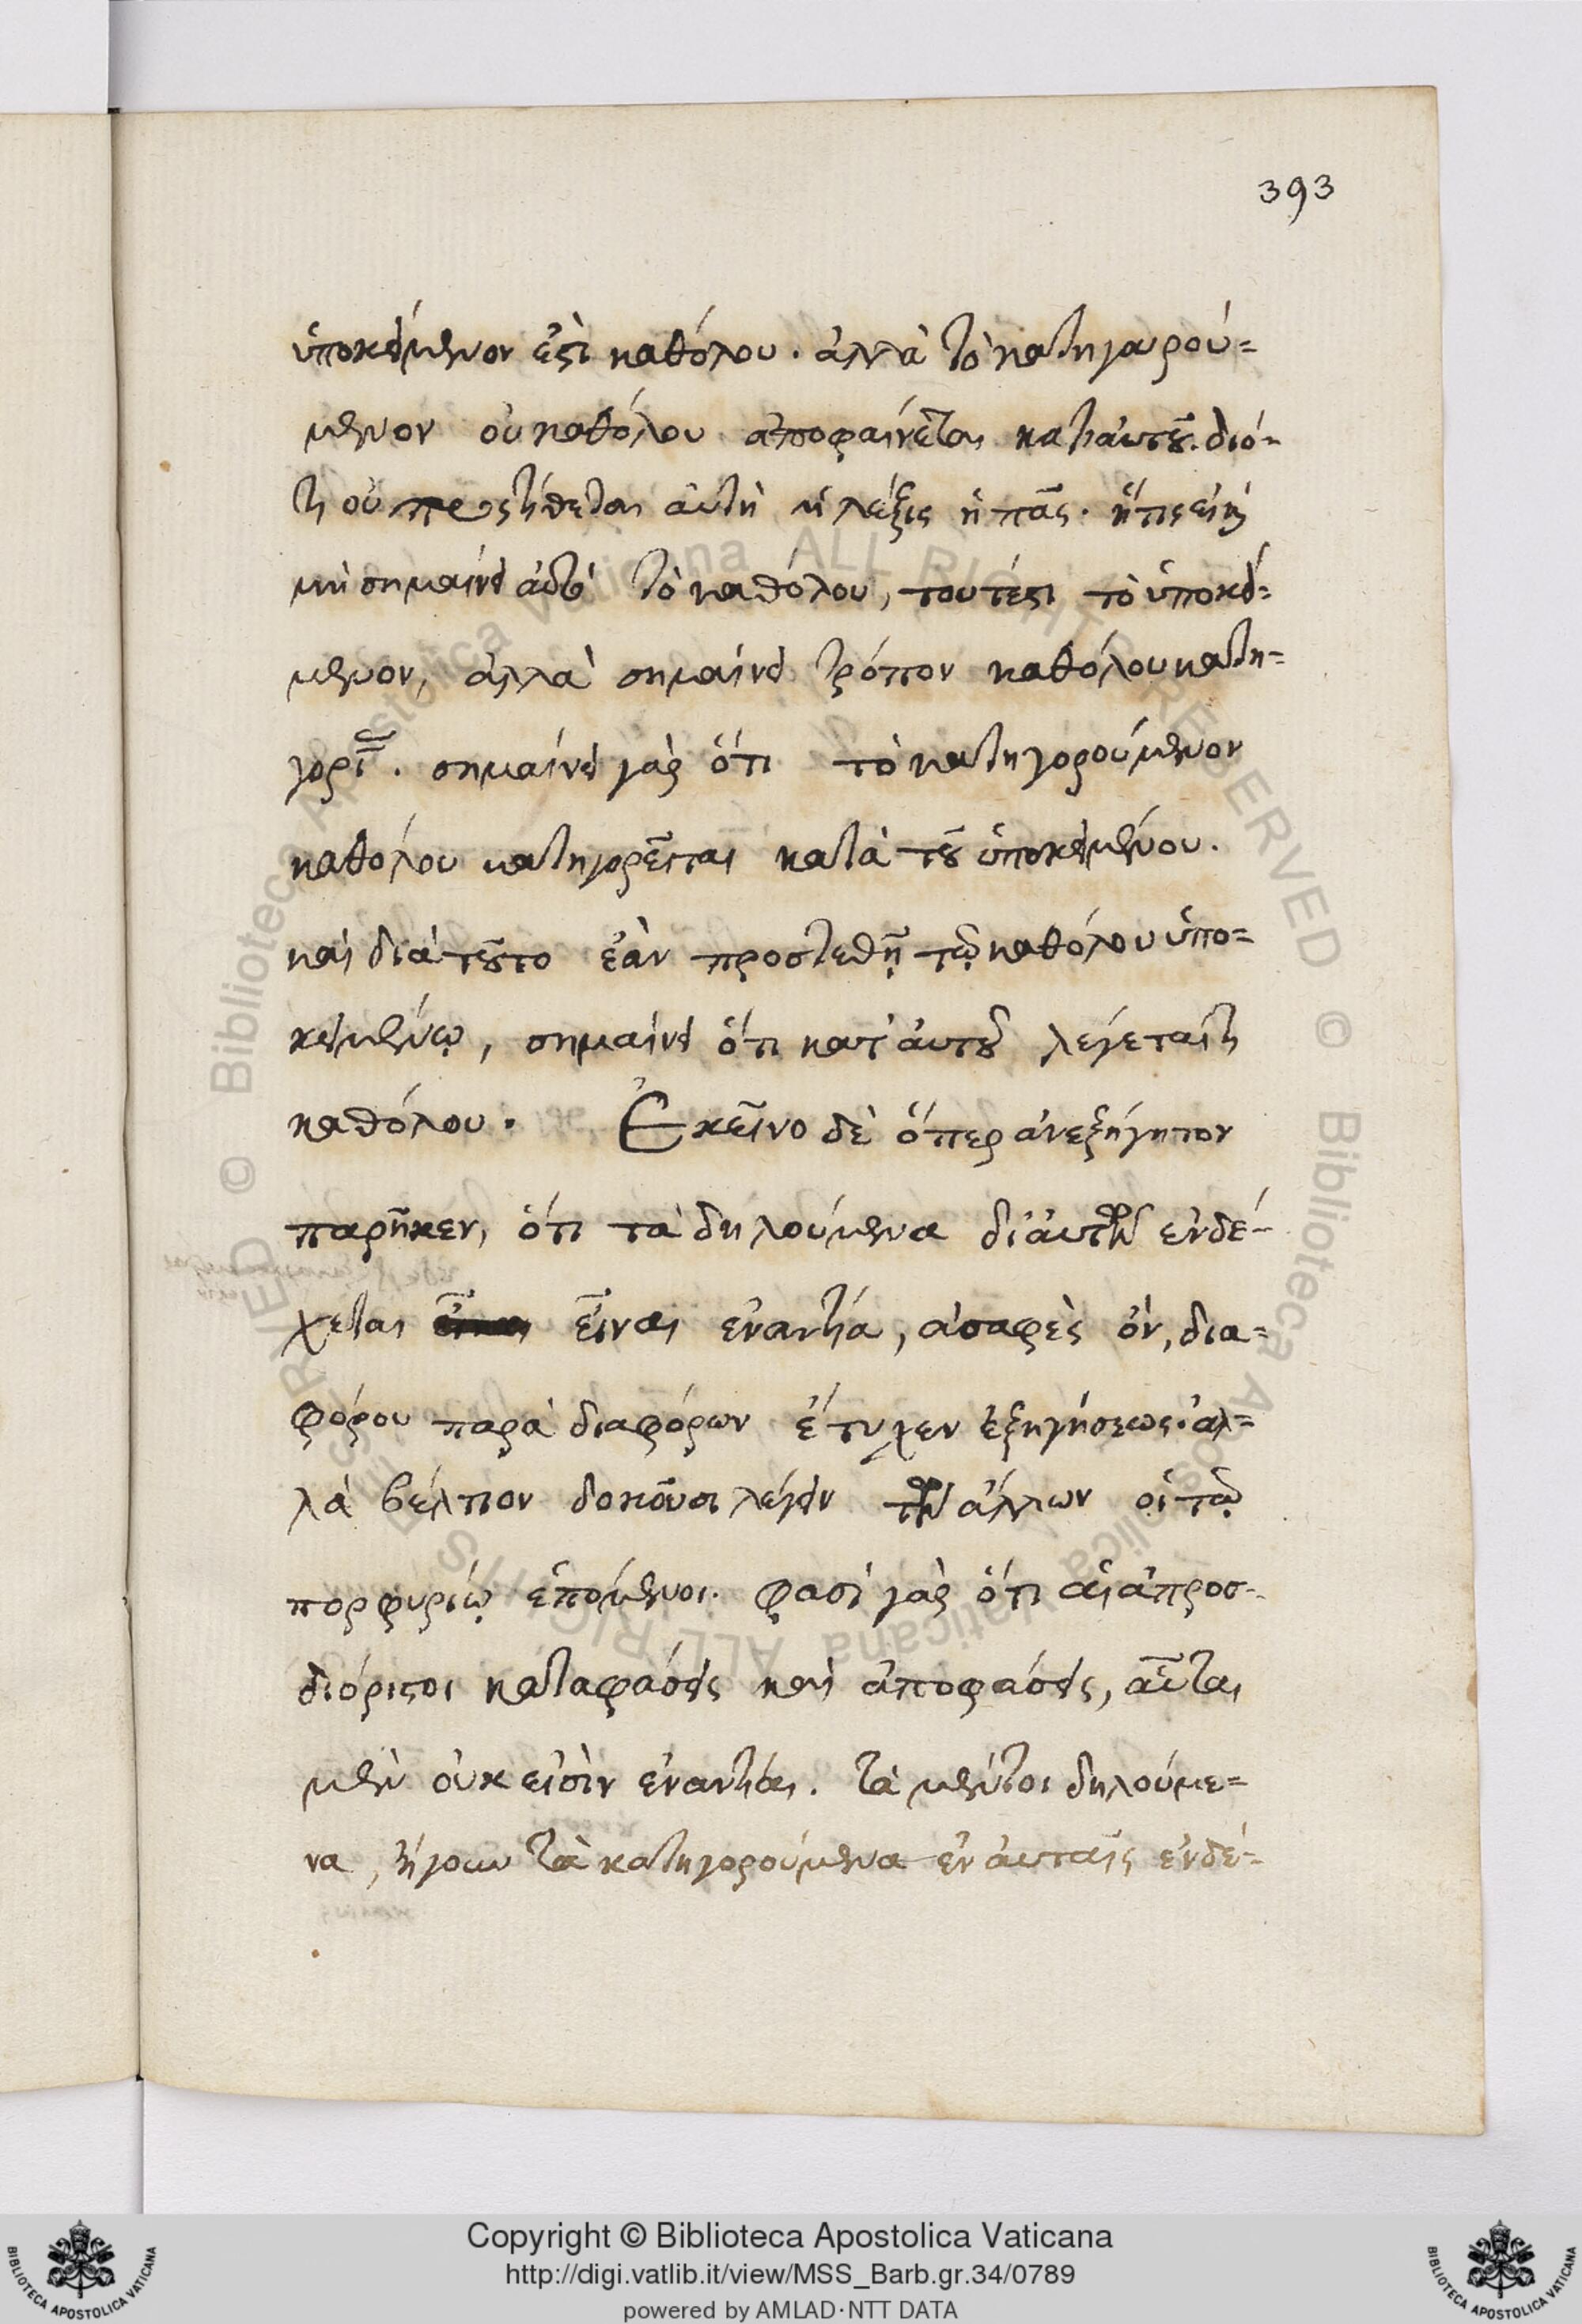 393
ὑποκείμενον ἐστὶ καθόλου. ἀλλὰ τὸ κατηγορού=
μενον οὐ καθόλου ἀποφαίνεται κατ' αὐτοῦ. διό-
τι οὐ προστίθεται αὐτῇ ἡ λέξις ἡ πᾶς. ἥτις
μὴ σημαίνει αὐτὸ τὸ καθόλου, τουτέστι τὸ ὑποκεί=
μενον, ἀλλὰ σημαίνει τρόπον καθόλου κατη=
γορί. σημαίνει γὰρ ὅτι τὸ κατηγορούμενον
καθόλου κατηγορεῖται κατὰ τοῦ ὑποκειμένου.
καὶ διὰ τοῦτο ἐὰν προστεθῇ τῷ καθόλου ὑπο=
κειμένῳ, σημαίνει ὅτι κατ' αὐτοῦ λέγεταί τι
καθόλου. Ἐκεῖνο δὲ ὅπερ ἀνεξήγητον
παρῆκεν, ὅτι τὰ δηλούμενα δι' αὐτῶν ἐνδέ-
χεται εἶναι ἐναντία, ἀσαφὲς ὂν, δια=
φόρου παρὰ διαφόρων ἔτυχεν ἐξηγήσεως. ἀλ=
λὰ βέλτιον δοκοῦσι λέγειν τῶν ἄλλων οἱ τῷ
πορφυρίῳ ἑπόμενοι. φασὶ γὰρ ὅτι αἱ ἀπροσ-
διόριστοι καταφάσεις καὶ ἀποφάσεις, αὗται
μὲν οὐκ εἰσὶν ἐναντίαι. τὰ μέντοι δηλούμε=
να, ἤγουν τὰ κατηγορούμενα ἐν αὐταῖς ἐνδέ-
© Biblioteca Apostolica Vaticana ALL RIGHTS RESERVED © Biblioteca Apostolica Vaticana ALL RIGHTS RESERVED
Copyright © Biblioteca Apostolica Vaticana
http://digi.vatlib.it/view/MSS_Barb.gr.34/0789
powered by AMLAD·NTT DATA
BIBLIOTECA APOSTOLICA VATICANA
BIBLIOTECA APOSTOLICA VATICANA